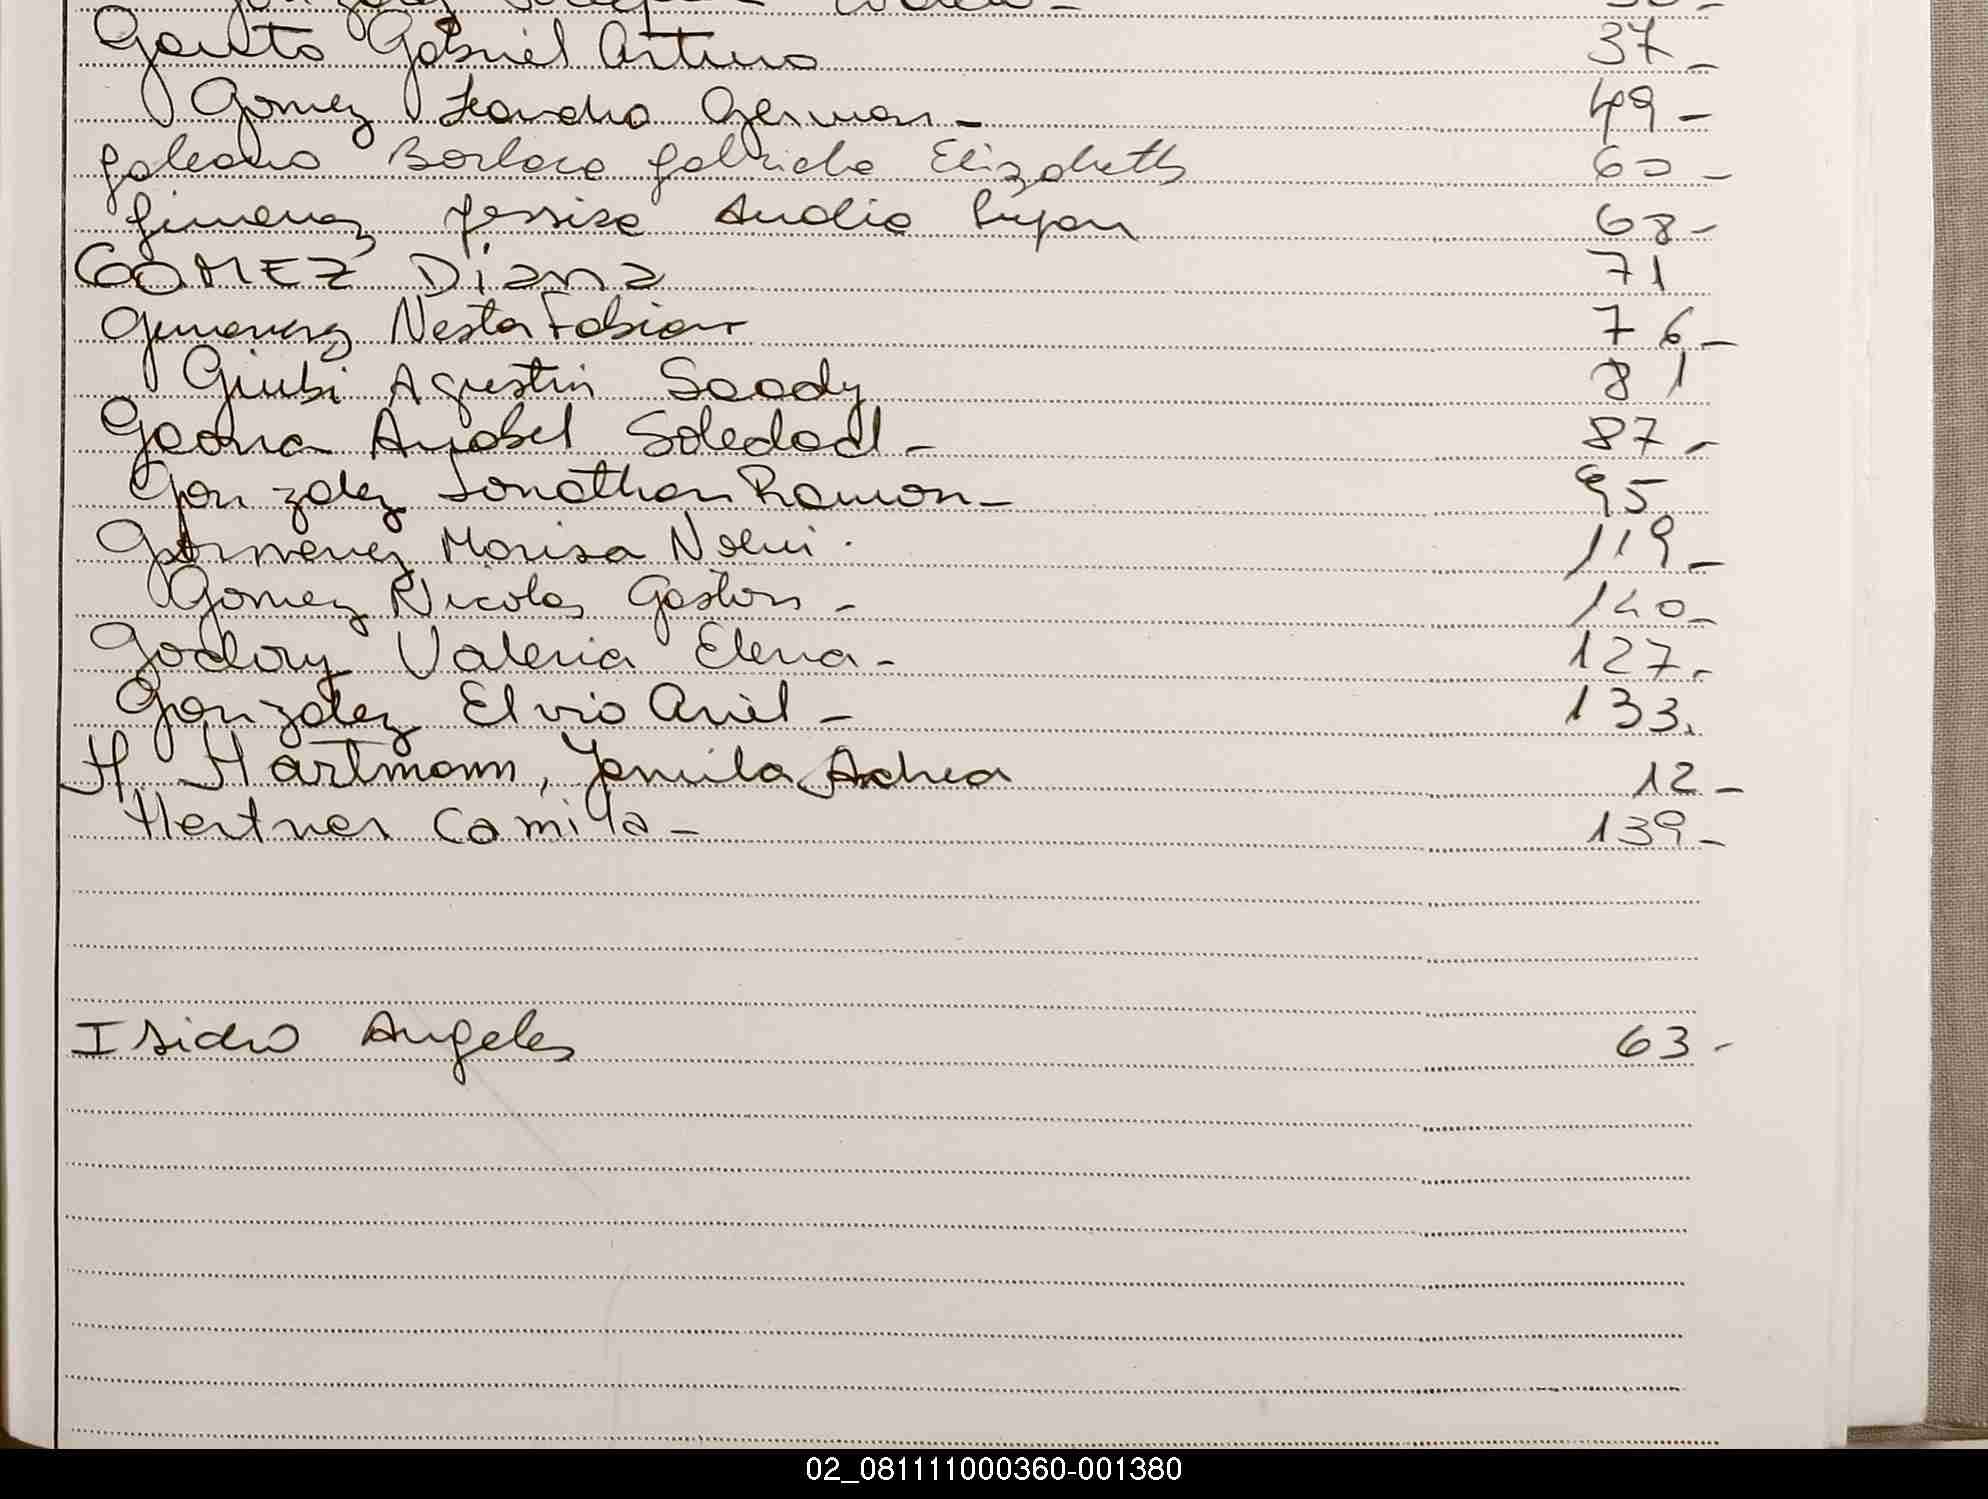 Gabriel Arturo 37-
Gomez Leandro German - 49-
Galeano Barbara Gabriela Elizabeth 60-
Gimenez Jessica Lujan 68-
GOMEZ Diana 71
Gimenez Nestor Fabian 76-
Giubi Agustin 81
Gaona Anabel Soledad - 87-
Gonzalez Jonathan Ramon - 95
Gimenez Marisa Noemi. 119-
Gomez Nicolas Gaston - 120-
Godoy Valeria Elena - 127.
Gonzalez Elvio Ariel - 133.
H Hartmann, Yamila 12-
Hertner Camila - 139-
Isidro Angeles 63-
02_081111000360-001380